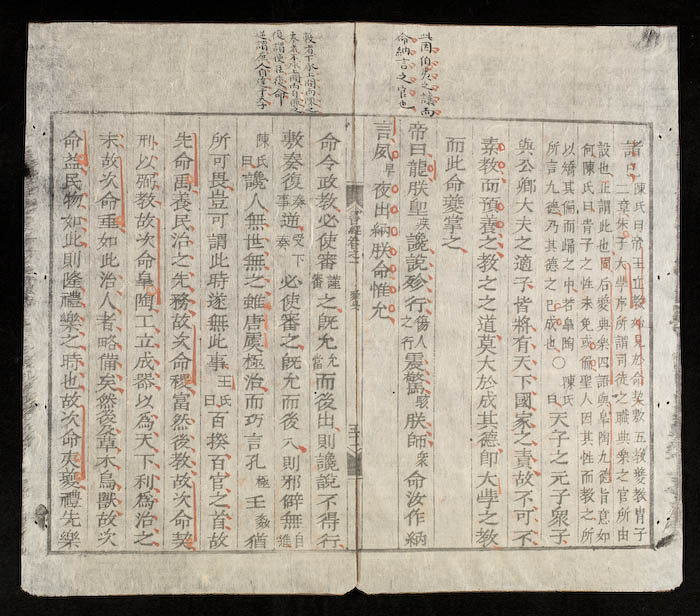 此因伯夷之讓而
命納言之官也
諸
陳氏曰帝王立教始見於命契敷五教夔教胄子
二章朱子大學序所謂司徒之職典樂之官所由
設也正謂此也周后夔典樂四語與皋陶九德旨意如
何陳氏曰胄子之性未免或偏聖人因其性而教之所
以矯其偏而歸之中若皋陶
所言九德乃其德之已成也○陳氏曰天子之元子衆子
與公卿大夫之適子皆將有天下國家之責故不可不
素教而預養之教之之道莫大於成其德即大學之教
而此命夔掌之
帝曰龍朕聖疾讒說殄行傷人之行震驚駭朕師衆命汝作納
言夙早夜出納朕命惟允
書經卷之一
命令政教必使審謹審之旣允當而後出則讒說不得行
敷奏復奏逆受下奏必使審之旣允而後入則邪僻無自進
陳氏曰讒人無世無之雖唐虞極治而巧言孔極壬姦猶
所可畏豈可謂此時遂無此事王氏曰百揆百官之首故
先命禹養民治之先務故次命稷富然後教故次命契
刑以弼教故次命皋陶工立成器以爲天下利爲治之
末故次命垂如此治人者略備矣然後及草木鳥獸故次
命益民物如此則隆禮樂之時也故次命夷夔禮先樂